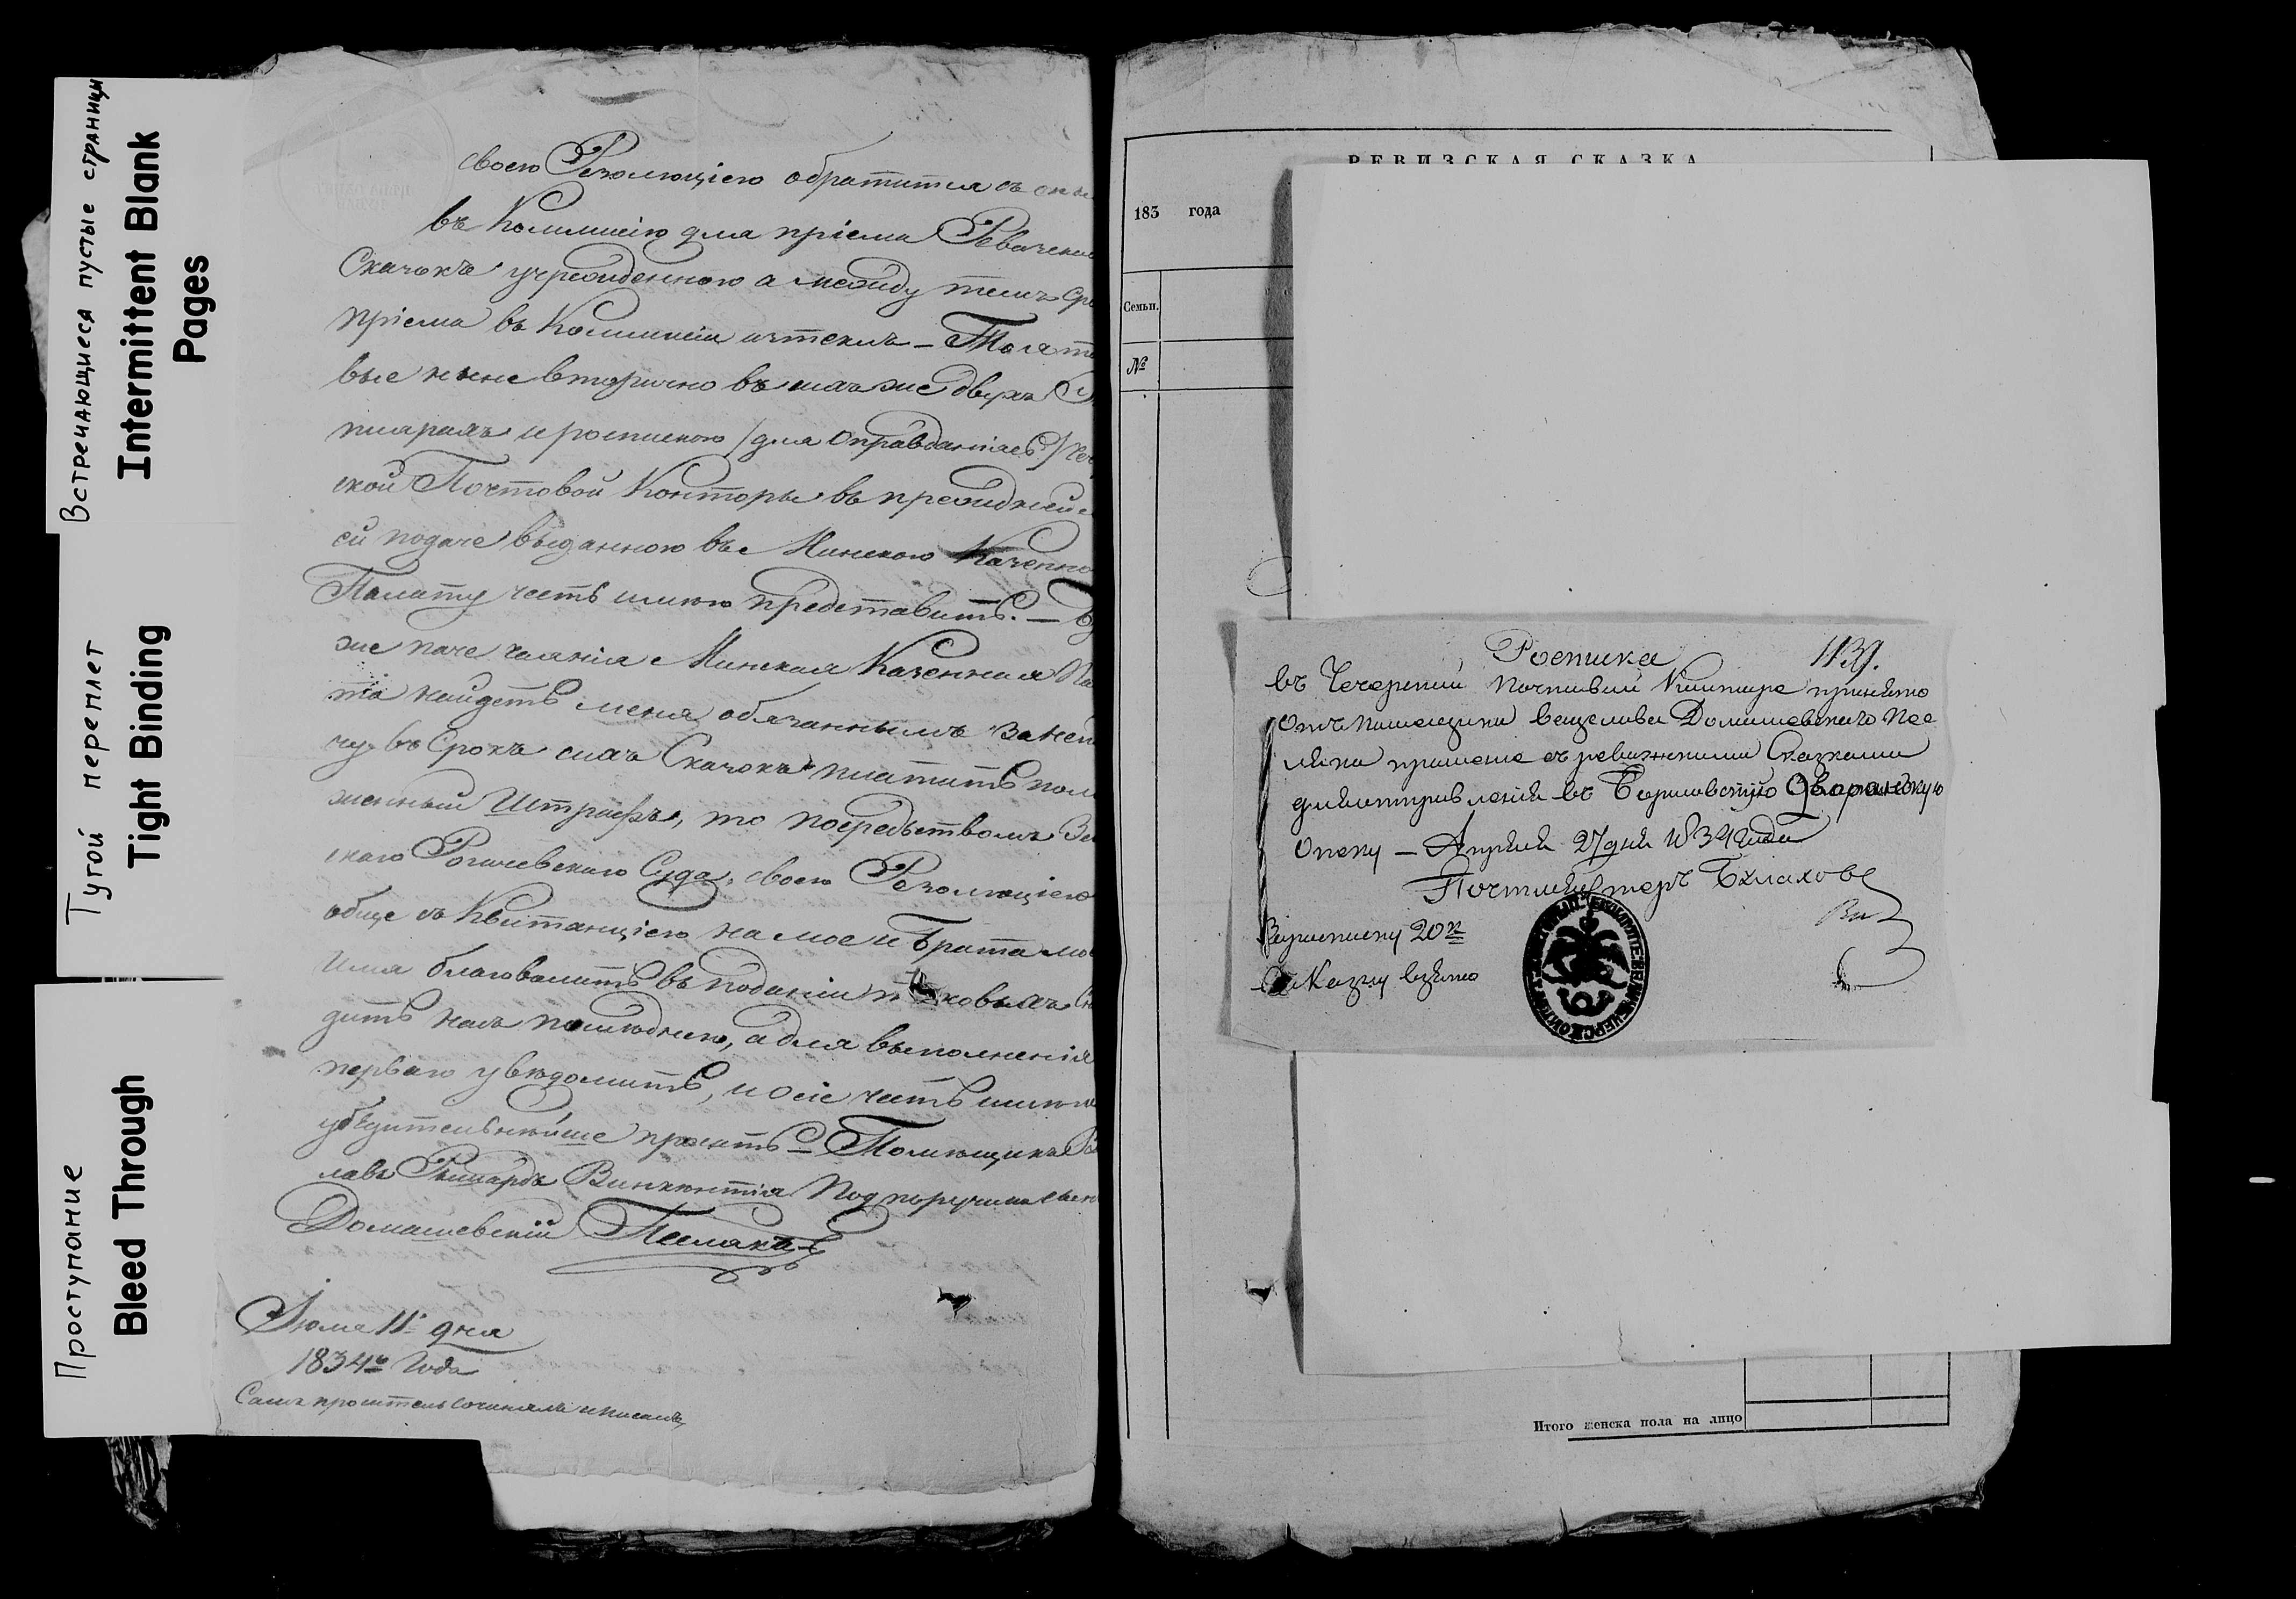 Встречающиеся пустые страницы
Intermittent Blank
Pages
Тугой переплет
Tight Binding
Проступание
Bleed Through
своею Резолюціею обратится съ
въ Коммисію для пріема
Сказокъ учрежденною а между темъ
пріема въ Коммисіи изтекъ —
вые ныне вторично въ ихъ же двухъ
плярахъ и роспискою /для оправданія/
ской Почтовой Конторы въ прежней
ей подаче выданною въ Минскою Казенно
Палату честь имею представить. —
же паче чаянія Минская Казенная Па
та найдетъ меня обязаннымъ за
чу въ Срокъ сихъ Сказокъ платить поло
женный Штрафъ, то посредьствомъ Зем
скаго Рогачевскаго Суда, своею Резолюціею
обще съ Квитанціею на мое и Брата мо
имя благоволитъ въ поданіи таковыхъ
дить насъ последнею, а для выполненія
перваго уведомить, и о сіе честь имею
убедительнейше просить — Помещикъ
лавъ Рышардъ Винкентія Подпоручика сынъ
Домашевскій Песляка
Іюля 11 дня
1834го Года
Самъ проситель сочинялъ и писалъ
РЕВИЗСКАЯ СКАЗКА
183 года
Семьи.
№
Росписка 1139.
въ Чечерской Почтовой Конторе принято
отъ помещика Вацслава Домашевскаго Пес
ляка прошеніе съ ревизскими Сказками
для отправленія въ Дворянскую
Опеку — Апреля 27 дня 1834 года
Почтмейстеръ
Весовыхъ 20 к
въ Казну взято
Итого женска пола на лицо